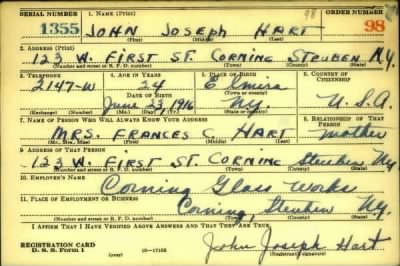 SERIAL NUMBER 1. NAME (Print) ORDER NUMBER
1355 JOHN JOSEPH HART 98 98
(First) (Middle) (Last)
2. ADDRESS (Print)
123 W. FIRST ST. CORNING STEUBEN N.Y.
(Number and street or R. F. D. number) (Town) (County) (State)
3. TELEPHONE 4. AGE IN YEARS 5. PLACE OF BIRTH 6. COUNTRY OF CITIZENSHIP
2147-W 24 Elmira
DATE OF BIRTH (Town or county)
June 23, 1916 N.Y. U.S.A
(Exchange) (Number) (Mo.) (Day) (Yr.) (State or country)
7. NAME OF PERSON WHO WILL ALWAYS KNOW YOUR ADDRESS 8. RELATIONSHIP OF THAT PERSON
MRS. FRANCES C. HART mother
(Mr., Mrs., Miss) (First) (Middle) (Last)
9. ADDRESS OF THAT PERSON
123 W. FIRST ST. CORNING Steuben Ny
(Number and street or R. F. D. number) (Town) (County) (State)
10. EMPLOYER'S NAME
Corning Glass Works
11. PLACE OF EMPLOYMENT OR BUSINESS
Corning, Steuben Ny.
(Number and street or R. F. D. number) (Town) (County) (State)
I AFFIRM THAT I HAVE VERIFIED ABOVE ANSWERS AND THAT THEY ARE TRUE.
REGISTRATION CARD
D. S. S. Form 1 (over) 16—17105 John Joseph Hart